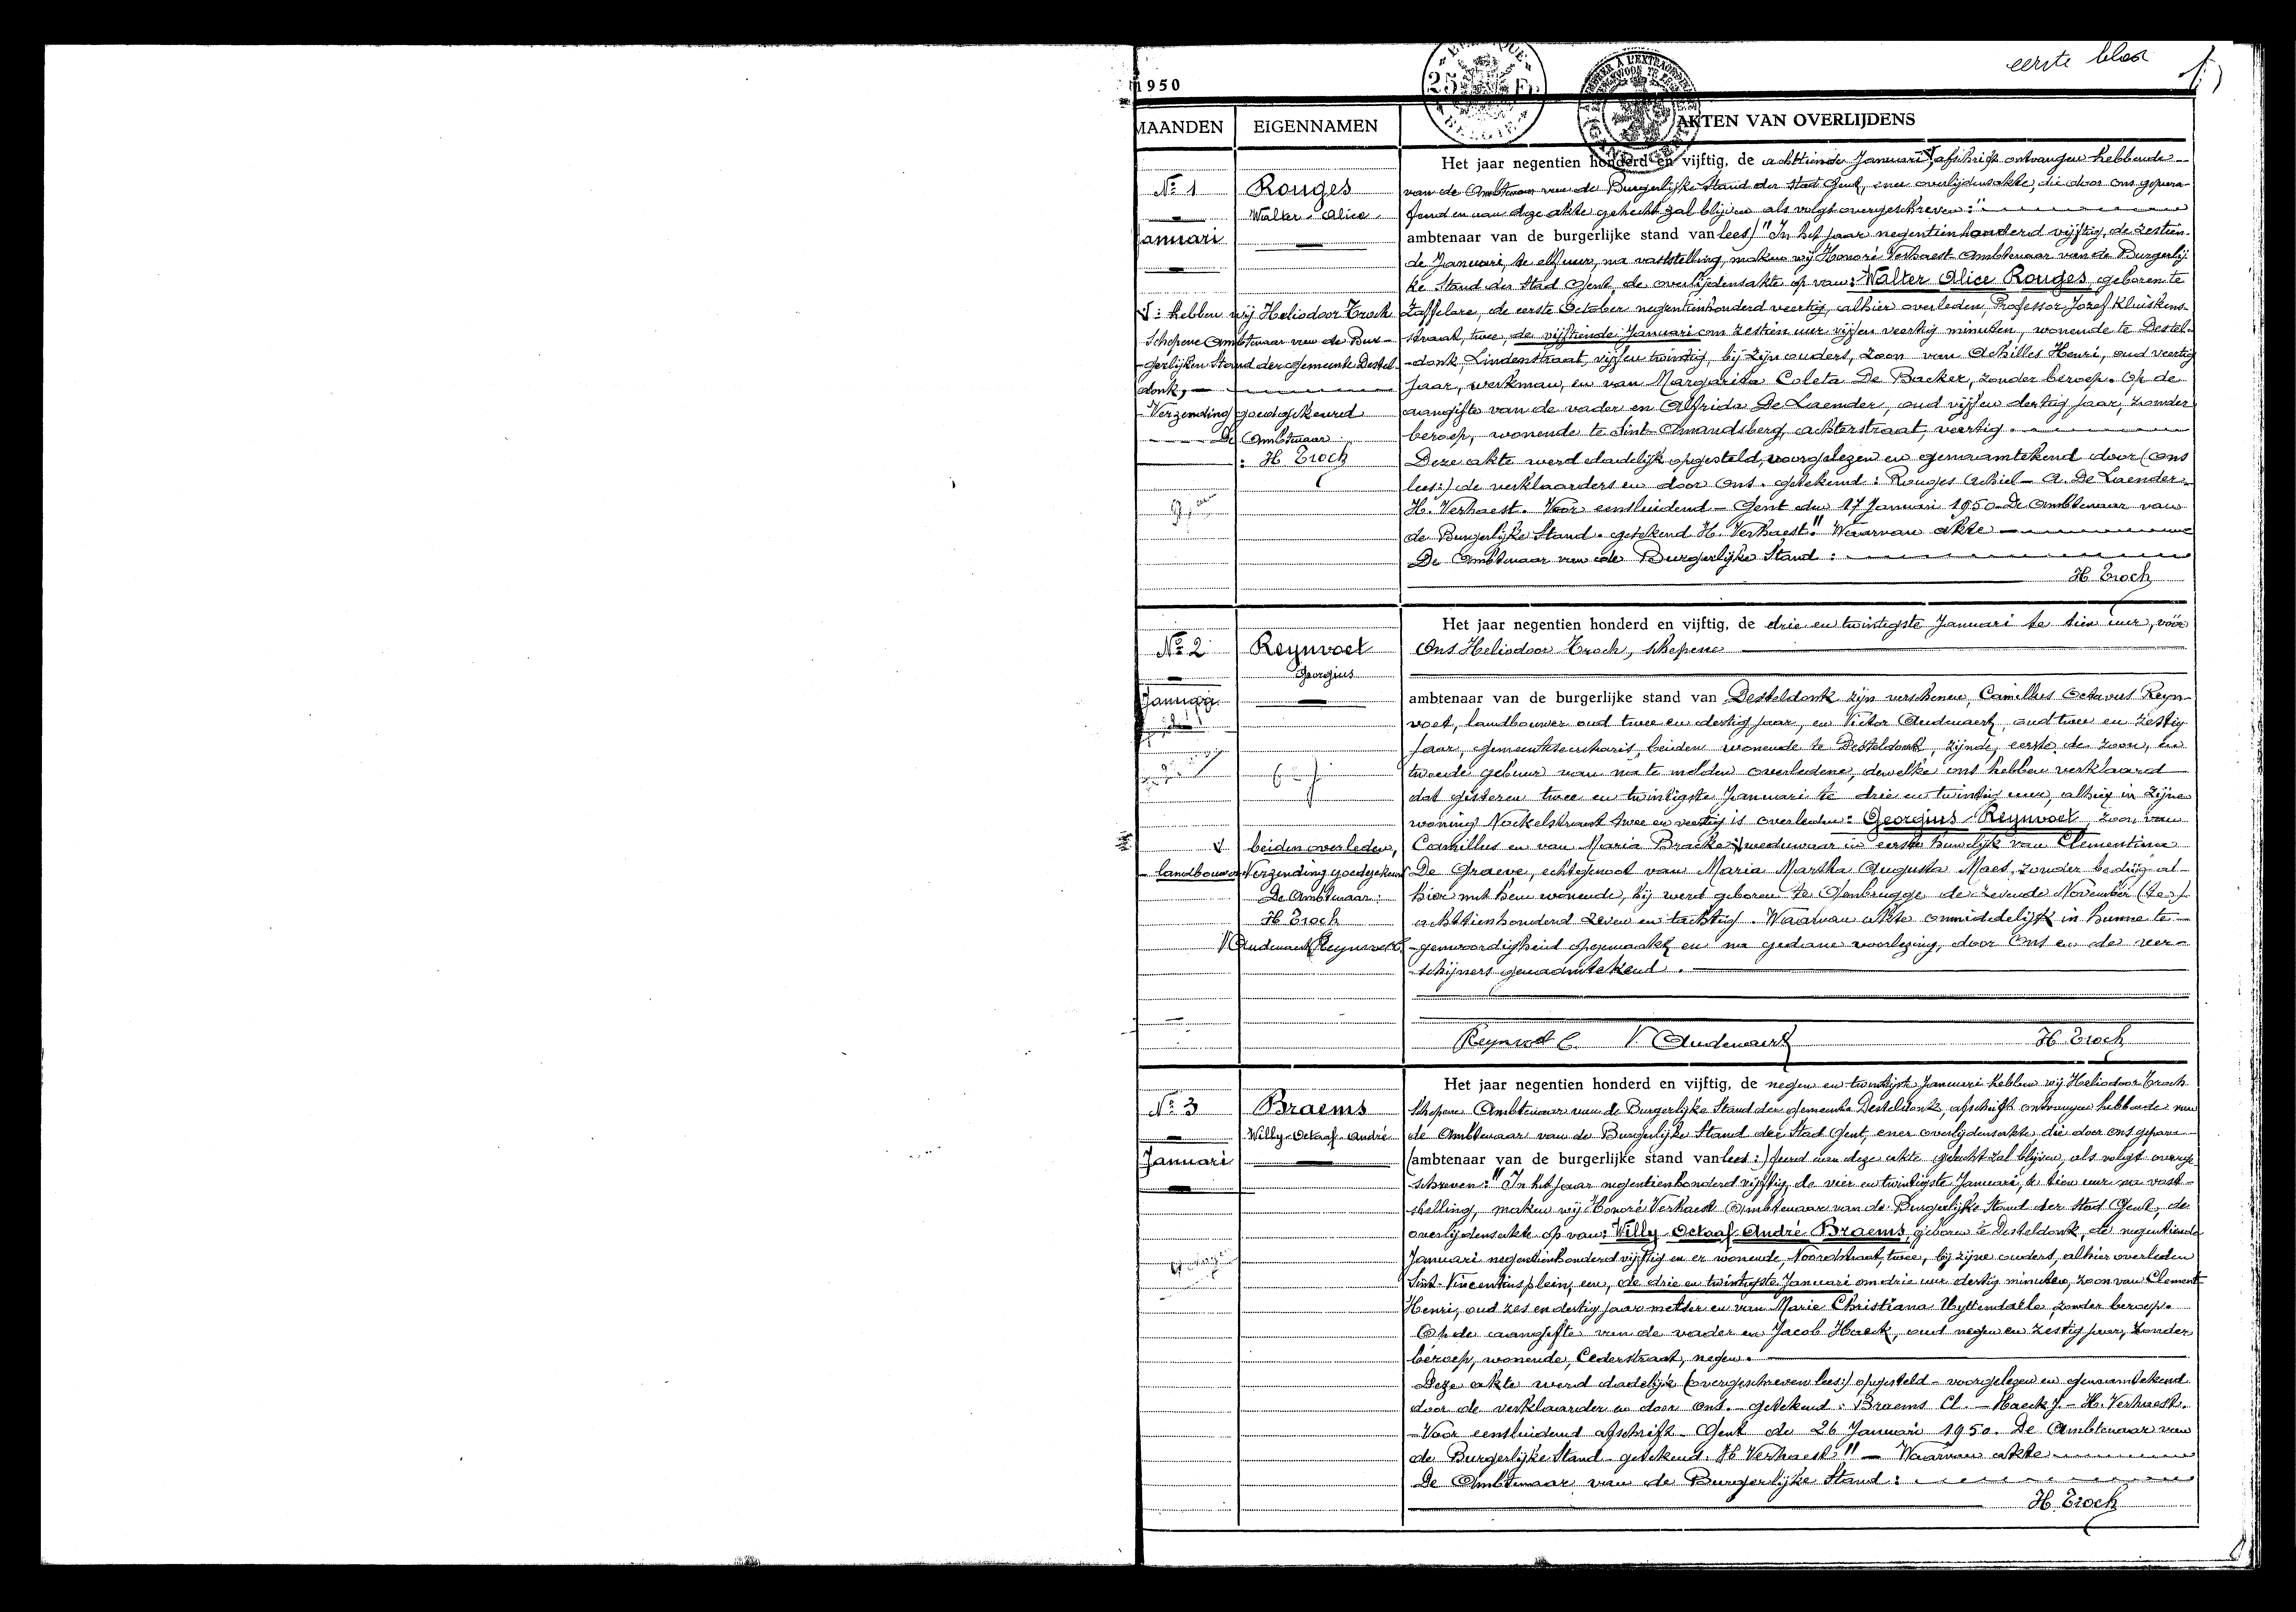 eerste blad
1950
MAANDEN
EIGENNAMEN
AKTEN VAN OVERLIJDENS
BELGIË
No 1
Januari
Rouges
Walter Alice
√: hebben wij Heliodoor Troch
Schepene Ambtenaar van de Bur-
gerlijken Stand der gemeente Destel-
donk,
Verzending goedgekeurd
De Ambtenaar:
H Troch
Het jaar negentien honderd en vijftig, de achttiende Januari √, afschrift ontvangen hebbende
van de Ambtenaar van de Burgerlijke Stand der Stad Gent, ener overlijdensakte, die door ons gepara-
feerd en aan deze akte gehecht zal blijven als volgt overgeschreven:"
ambtenaar van de burgerlijke stand van lees) "In het jaar negentienhonderd vijftig, de zestien-
de Januari, te elf uur, na vaststelling, maken wij Honoré Verhaest Ambtenaar van de Burgerlij-
ke Stand der Stad Gent, de overlijdensakte op van: Walter Alice Rouges, geboren te
Zaffelare, de eerste October negentienhonderd veertig, alhier overleden, Professor Jozef Kluiskens-
straat, twee, de vijftiende Januari om zestien uur vijf en veertig minuten, wonende te Destel-
donk, Lindenstraat, vijf en twintig, bij zijn ouders, zoon van Achilles Henri, oud veertig
jaar, werkman, en van Margarita Coleta De Backer, zonder beroep. Op de
aangifte van de vader en Alfrida De Laender, oud vijf en dertig jaar, zonder
beroep, wonende te Sint-Amandsberg, achterstraat, veertig.
Deze akte werd dadelijk opgesteld, voorgelezen en genaamtekend door (ons
lees:) de verklaarders en door Ons. getekend: Rouges Achiel - A. De Laender.
H. Verhaest. Voor eensluidend - Gent den 17 Januari 1950 De Ambtenaar van
de Burgerlijke Stand. getekend H. Verhaest." Waarvan akte
De Ambtenaar van de Burgerlijke Stand:
H Troch
No 2
Januari
Reynvoet
Georgius
√ beiden overleden,
landbouwer Verzending goedgekeurd
De Ambtenaar:
H Troch
V Audenaert Reynvoet C.
Het jaar negentien honderd en vijftig, de drie en twintigste Januari te tien uur, vóór
Ons Heliodoor Troch, schepene
ambtenaar van de burgerlijke stand van Desteldonk zijn verschenen, Camillus Octavus Reyn-
voet, landbouwer oud twee en dertig jaar, en Victor Audenaert, oud twee en zestig
jaar, gemeentesecretaris, beiden wonende te Desteldonk, zijnde, eerste de zoon, en
tweede gebuur van na te melden overledene, dewelke ons hebben verklaard
dat gisteren twee en twintigste Januari te drie en twintig uur, alhier in zijne
woning Nackelstraat twee en veertig is overleden: Georgius Reynvoet, zoon van
Camillus en van Maria Bracke √ weduwnaar in eerste huwelijk van Clementina
De Graeve, echtgenoot van Maria Martha Augusta Maes, zonder bedrijf al-
hier met hem wonende, hij werd geboren te Gentbrugge de zevende November
achttienhonderd zeven en tachtig. Waarvan akte onmiddelijk in hunne te-
genwoordigheid opgemaakt en na gedane voorlezing, door Ons en de ver-
schijners genaamtekend.
Reynvoet C. V. Audenaert H. Troch
No 3
Januari
Braems
Willy-Octaaf-André
Het jaar negentien honderd en vijftig, de negen en twintigste Januari hebben wij Heliodoor Troch
Schepene Ambtenaar van de Burgerlijke Stand der gemeente Desteldonk, afschrift ontvangen hebbende van
de Ambtenaar van de Burgerlijke Stand der Stad Gent, ener overlijdensakte, die door ons gepara-
(ambtenaar van de burgerlijke stand van lees:) feerd aan deze akte gehecht zal blijven, als volgt overge-
schreven: "In het jaar negentienhonderd vijftig, de vier en twintigste Januari, te tien uur na vast-
stelling, maken wij Honoré Verhaest Ambtenaar van de Burgerlijke Stand der Stad Gent, de
overlijdensakte op van: Willy Octaaf André Braems, geboren te Desteldonk, de negentiende
Januari negentienhonderd vijftig en er wonende, Noordstraat, twee, bij zijne ouders, alhier overleden
Sint-Vincentiusplein, een, de drie en twintigste Januari om drie uur dertig minuten, zoon van Clement
Henri, oud zes en dertig jaar metser en van Marie Christiana Uyttendaele, zonder beroep.
Op de aangifte van de vader en Jacob Haeck, oud negen en zestig jaar, zonder
beroep, wonende, Cederstraat, negen.
Deze akte werd dadelijk (overgeschreven lees:) opgesteld - voorgelezen en genaamtekend
door de verklaarder en door Ons. - getekend: Braems Cl. - Haeck J. - H. Verhaest.
Voor eensluidend afschrift. Gent de 26 Januari 1950. De Ambtenaar van
de Burgerlijke Stand - getekend. H Verhaest" - Waarvan akte
De Ambtenaar van de Burgerlijke Stand:
H Troch